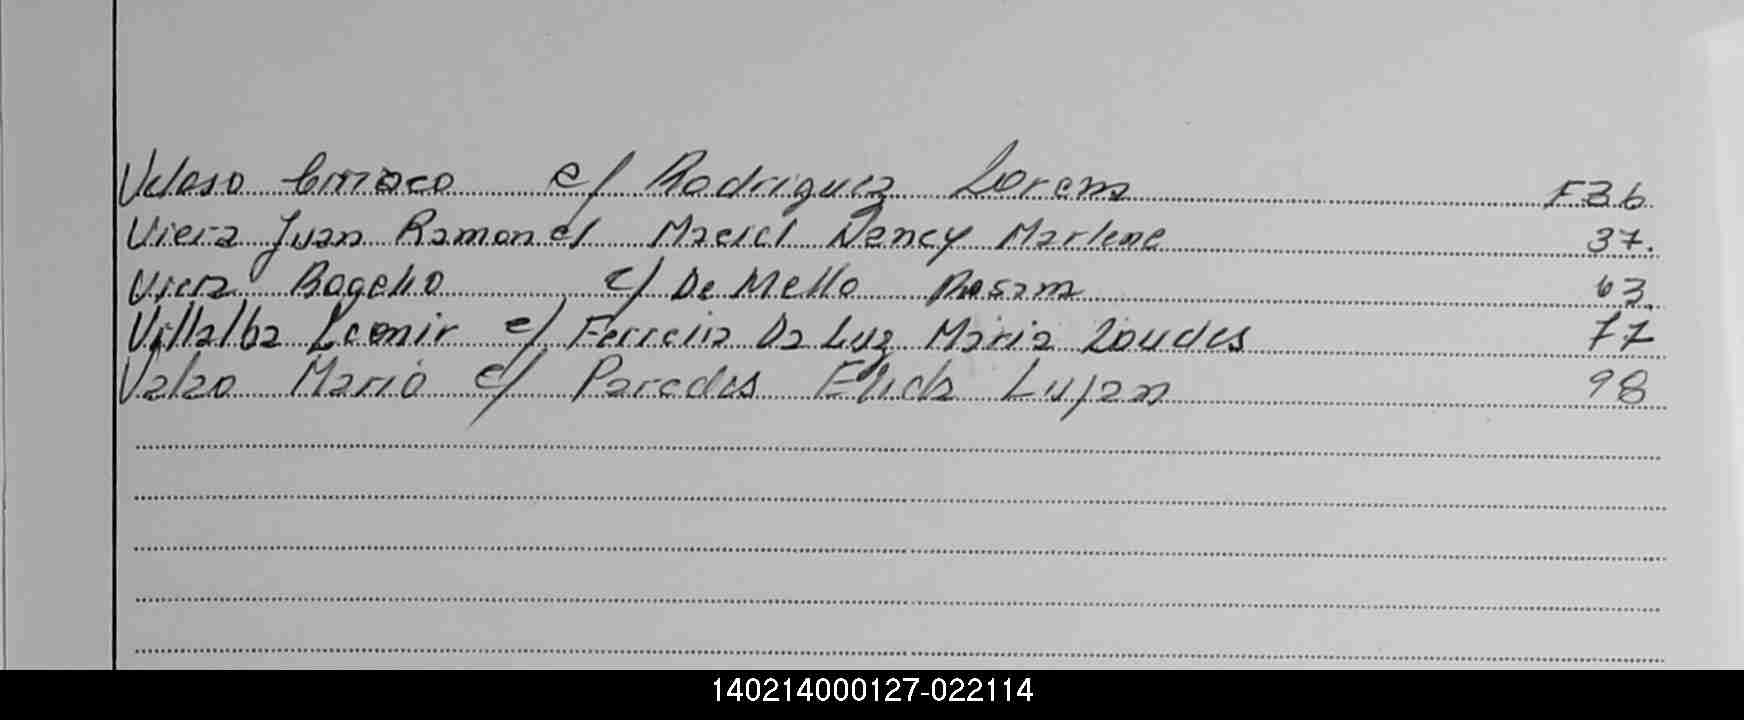 Veloso Ciriaco c/ Rodriguez Lorena F36
Viera Juan Ramon c/ Maciel Nancy Marlene 37.
Viera Rogelio c/ De Mello Rosana 63.
Villalba Leonir c/ Ferreira Da Luz Maria Loudes 77
Valao Mario c/ Paredes Elida Lujan 98
140214000127-022114